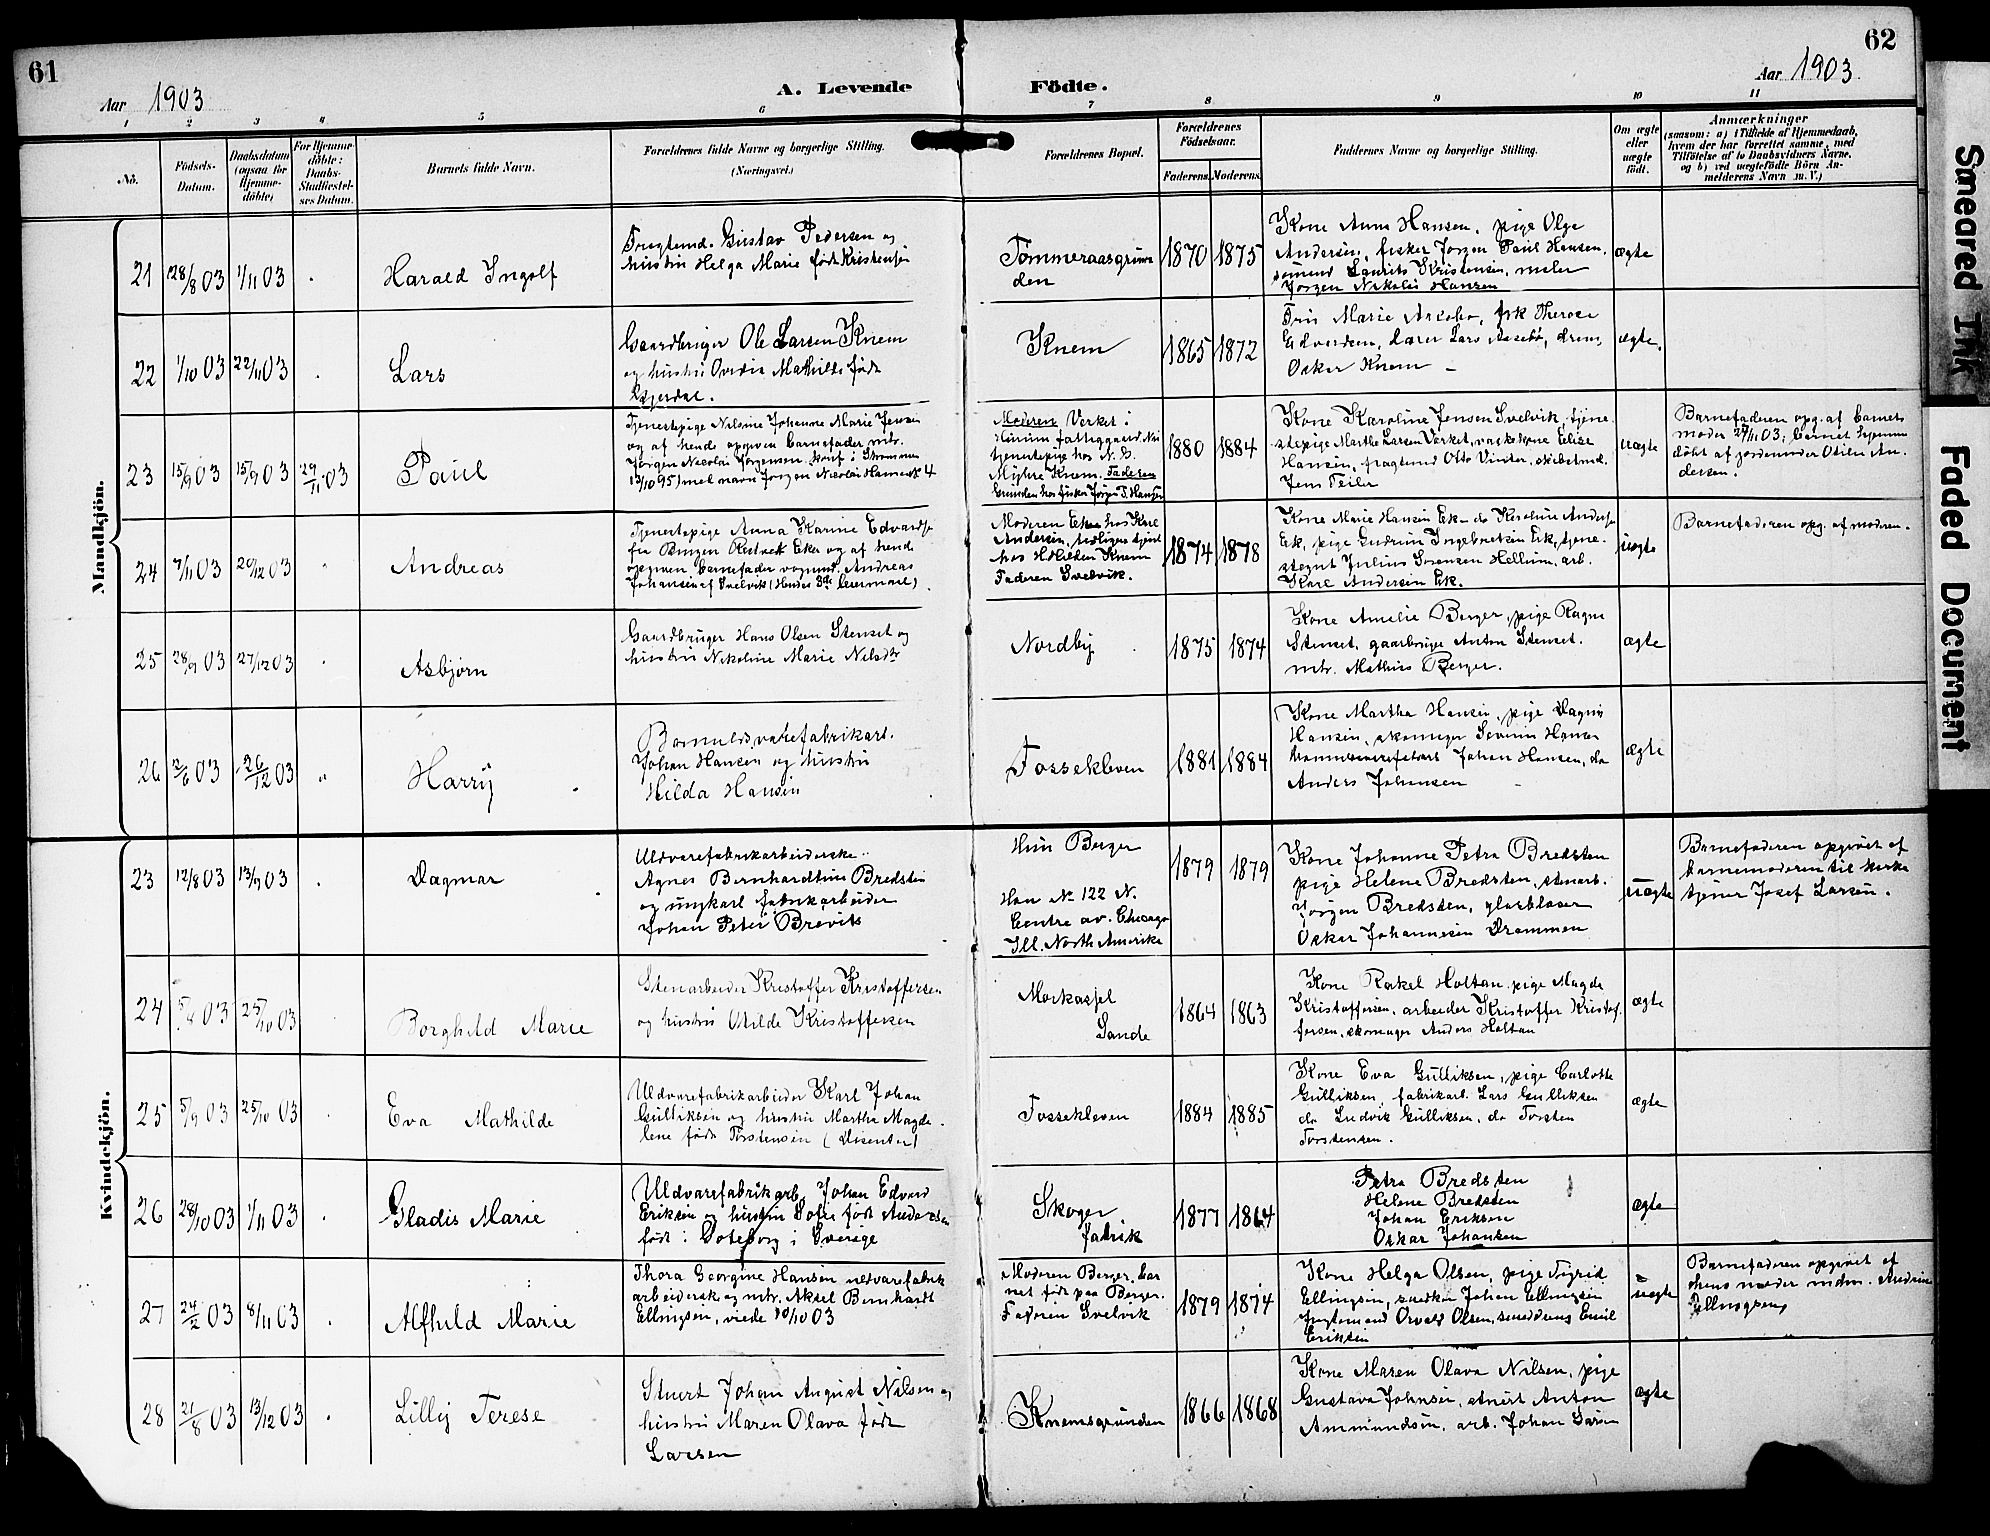 61
Aar 1903
A. Levende
Födte.
Aar 1903.
62
1 2 3 4 5 6 7 8 9 10 11
Nö.
Födsels-
Datum.
Daabsdatum
(ogsaa för
Hjemme-
döbte)
For Hjemme-
döbte:
Daabs-
Stadfæstel-
ses Datum.
Barnets fulde Navn.
Forældrenes fulde Navne og borgerlige Stilling.
(Næringsvei.)
Forældrenes Bopæl.
Forældrenes
Födselsaar.
Faderens.
Moderens.
Faddernes Navne og borgerlige Stilling.
Om ægte
eller
uægte
födt.
Anmærkninger
(saasom: a) i Tilfælde af Hjemmedaab,
hvem der har forrettet samme, med
Tilföielse af to Daabsvidners Navne,
og b) ved uægtefödte Börn An-
melderens Navn m. V.)
Mandkjön.
21
28/8 03
1/11 03
Harald Ingolf
Fragtemd. Gustav Pedersen og
hustru Helga Marie født Kristensen
Tømmeraasgrun
den
1870
1875
Kone Anna Hansen, pige Olga
Andersen, fisker Jørgen Paul Hansen,
sømand Laurits Kristensen, maler
Jørgen Nikolai Hansen
ægte
22
1/10 03
22/11 03
Lars
Gaardbruger Ole Larsen Knem
og hustru Ovidia Mathilde født
Knem
1865
1872
Fru Marie Aasebø, frk Therese
Edvardsen, lærer Lars Aasebø, dreng
Oskar Knem –
ægte.
23
15/9 03
15/9 03
29/11 03
Paul
Tjenestepige Nilsine Johanne Marie Jensen
og af hende opgiven barnefader, mtr.
Jørgen Nicolai Jørgensen konf i Strømmen
13/10 95) med navn Jørgen Nicolai Hansen № 4
Moderen Verket i
Hurum fattiggaard. Nu
tjenestepige hos N. C.
Myhre Knem. Faderen
Grunden hos fisker Jørgen P. Hansen
1880
1884
Kone Karoline Jensen Svelvik, tjene
stepige Marthe Larsen Verket, vaskekone Elise
Hansen, fragtemd Otto Vinter, skibstmd.
Jens Teiler
uægte
Barnefaderen opg. af barnets
moder 29/11 03; barnet hjemme
døbt af jordemoder Otilie An
dersen.
24
7/11 03
20/12 03
Andreas
Tjenestepige Anna Karine Edvardse
fra Bingen Eker og af hende
opgiven barnefader vognmd. Andreas
Johansen af Svelvik (Hendes 3die leiermaal).
Moderen Eker hos Karl
Andersen, tidligere tjent
hos Knem
Faderen Svelvik.
1874
1878
Kone Marie Hansen Ek – do Karoline Anderse
Ek, pige Gudrun Ingebretsen Ek, tjene
stegut Julius Sørensen Hellum, arb.
Karl Andersen Ek.
uægte
Barnefaderen opg. af moderen.
25
28/9 03
27/12 03
Asbjørn
Gaardbruger Hans Olsen Stenset og
hustru Nikoline Marie Nilsdtr
Nordby
1875
1874
Kone Amelie Berger, pige Ragna
Stenset, gaarbruger Anton Stenset.
mtr. Mathias Berger.
ægte
26
2/6 03
26/12 03
"
Harry
Bomuldsvarefabrikarb.
Johan Hansen og hustru
Hilda Hansen
Fossekleven
1881
1884
Kone Martha Hansen, pige Dagny
Hansen, skomager Severin Hansen
Johan Hansen, do
Anders Johansen –
ægte
Kvindekjön.
23
12/8 03
13/9 03
Dagmar
Uldvarefabrikarbeiderske
Agnes Bernhardthine Bredsten
og ungkarl fabrikarbeider
Johan Peter Brevits
Hun Berger
Han № 122 N.
Centre av. Chicago
Ill. North Amerika
1879
1879
Kone Johanne Petra Bredsten
pige Helene Bredsten, stenarb.
Jørgen Bredsten, glasblaaser
Oskar Johannesen Drammen
uægte
Barnefaderen opgivet af
barnemoderen til kirke
tjener Josef Larsen.
24
5/8 03
25/10 03
Borghild Marie
Stenarbeider Kristoffer Kristoffersen
og hustru Otilde Kristoffersen
Morkassel
Sande
1864
1863
Kone Rakel Holtan pige Magda
Kristoffersen, arbeider Kristoffer Kristof
fersen, skomager Anders Holtan
ægte
25
5/9 03
25/10 03
Eva Mathilde
Uldvarefabrikarbeider Karl Johan
Gulliksen og hustru Martha Magda
lene født Torstensen (Disenter)
Fossekleven
1884
1885
Kone Eva Gulliksen, pige Carlotte
Gulliksen, fabrikarb. Lars Gulliksen
do Ludvik Gulliksen, do Torsten
Torstensen.
ægte
26
28/10 03
1/11 03
Gladis Marie
Uldvarefabrikarb. Johan Edvard
Eriksen og hustru Sofie født Anderse
født i Goteborg i Sverige
Skoger
fabrik
1877
1864
Petra Bredsten
Helene Bredsten
Johan Eriksen
Oskar Johansen
ægte
27
24/2 03
8/11 03
Alfhild Marie
Thora Georgine Hansen uldvarefabrik
arbeiderske og mtr. Aksel Bernhardt
Ellingsen, viede 10/10 03
Moderen Berger, bar
net født paa Berger.
Faderen Svelvik
1879
1874
Kone Helga Olsen, pige Sigrid
Ellingsen, snedker Johan Ellingsen
Osvald Olsen, Emil
Eriksen
uægte
Barnefaderen opgivet af
hans moder mdm. Andrine
Ellingsen
28
21/8 03
13/12 03
Lilly Terese
Stuert Johan August Nilsen og
hustru Maren Olava født
Larsen
Knemsgrunden
1866
1868
Kone Maren Olava Nilsen, pige
Gustava Johnsen, stuert Anton
Ammundsen, arb. Johan Larsen
ægte
Smeared Ink
Faded Document